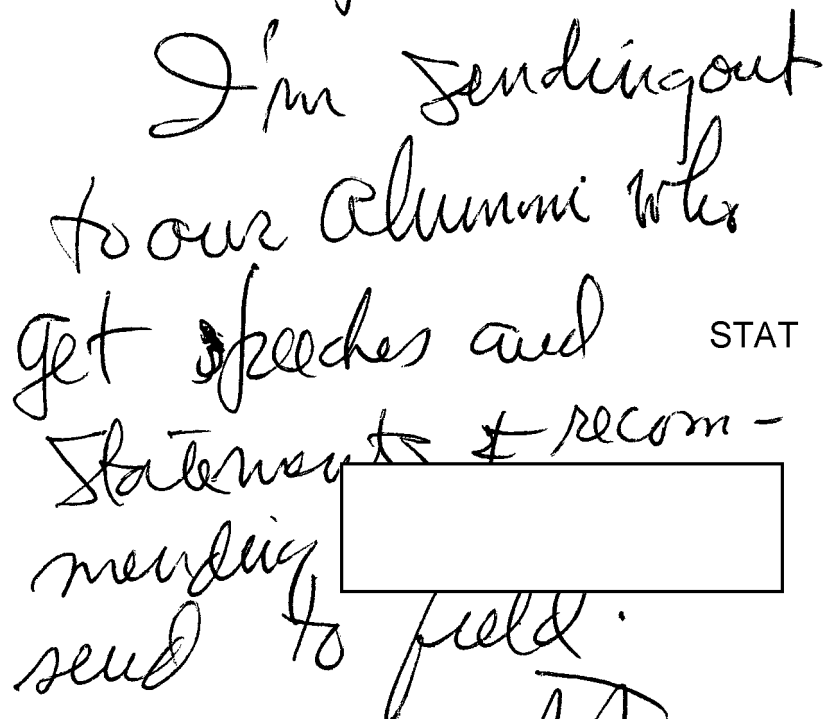 I'm sending out
to our alumni who
get speeches and
STAT
statements & recom-
mending
send to field.